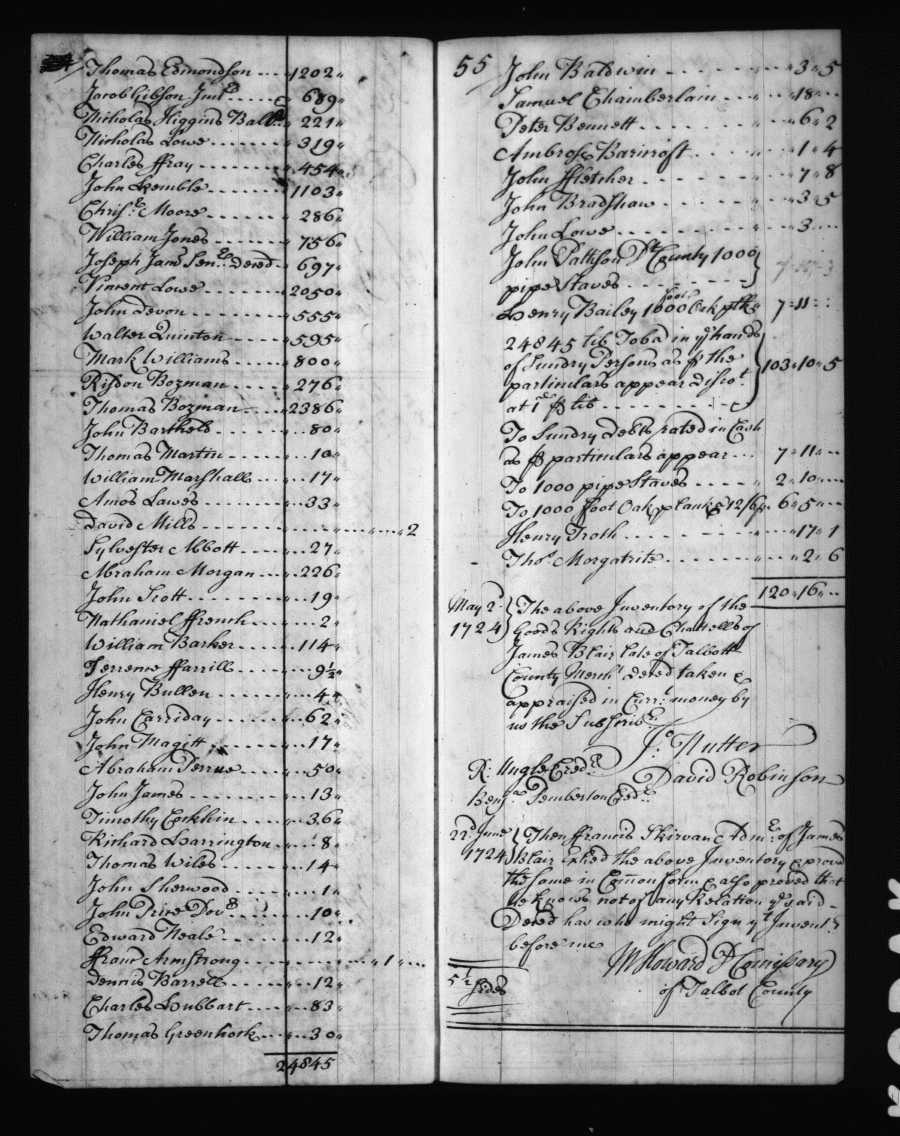 Thomas Edmondson 1202
Jacob Gibson Junr 689
Nicholas Higgins Balt 221
Nicholas Lowe 319
Charles ffray 454
John Kemble 1103
Chrisr Moore 286
William Jones 756
Joseph James Senr deced 697
Vincent Lowe 2050
John Devon 555
Walter Quinton 595
Mark Williams 800
Risdon Bozman 276
Thomas Bozman 2386
John Barthels 80
Thomas Martin 10
William Marshall 17
Amos Lawes 33
David Mills 2
Sylvester Abbott 27
Abraham Morgan 226
John Scott 19
Nathaniel ffrench 2
William Barker 114
Terrence ffarrill 9½
Henry Bullen 4
John Carriday 62
John Magitt 17
Abraham 50
John James 13
Timothy Conklin 36
Richard Harrington 8
Thomas Wiles 14
John Sherwood 1
John Price Dovr 10
Edward Neale 12
ffranc Armstrong 1
Dennis Barrett 12
Charles Hubbart 83
Thomas Greenhock 30
24845
55 John Baldwin 3 5
Samuel Chamberlain 18
Peter Bennett 6 2
Ambrose Barcroft 1 4
John ffletcher 7 8
John Bradshaw 3 5
John Lowe 3
John Pattison Dt County 1000
pipe Staves
foot
Henry Bailey 1000 Oak 7 11
24845 lib Toba in ye hands
of Sundry Persons as p the
particulars appear
at 1d p lib 103 10 5
To Sundry debts rated in Cash
as p particulars appear 7 11
To 1000 pipe Staves 2 10
To 1000 ffoot Oak plank 12/6 6 5
Henry Troth 17 1
Thos Morgatrite 2 6
120 16
May 2d The above Inventory of the
1724 Goods Rights and Chattells of
James Blair late of Talbott
County Mercht deced taken &
appraised in Currt money by
us the Subscribrs
Js Nutter
R: Ungle Credr David Robinson
Benja Pemberton Credr
22d June Then ffrancis Skirvan Admr of James
1724 Blair Exhed the above Inventory & proved
the same in Comon form & also proved that
he knows not of any Relation ye said
Deced has who might Sign yt Inventry
before me
W Howard D Comissary
5½ sides of Talbot County